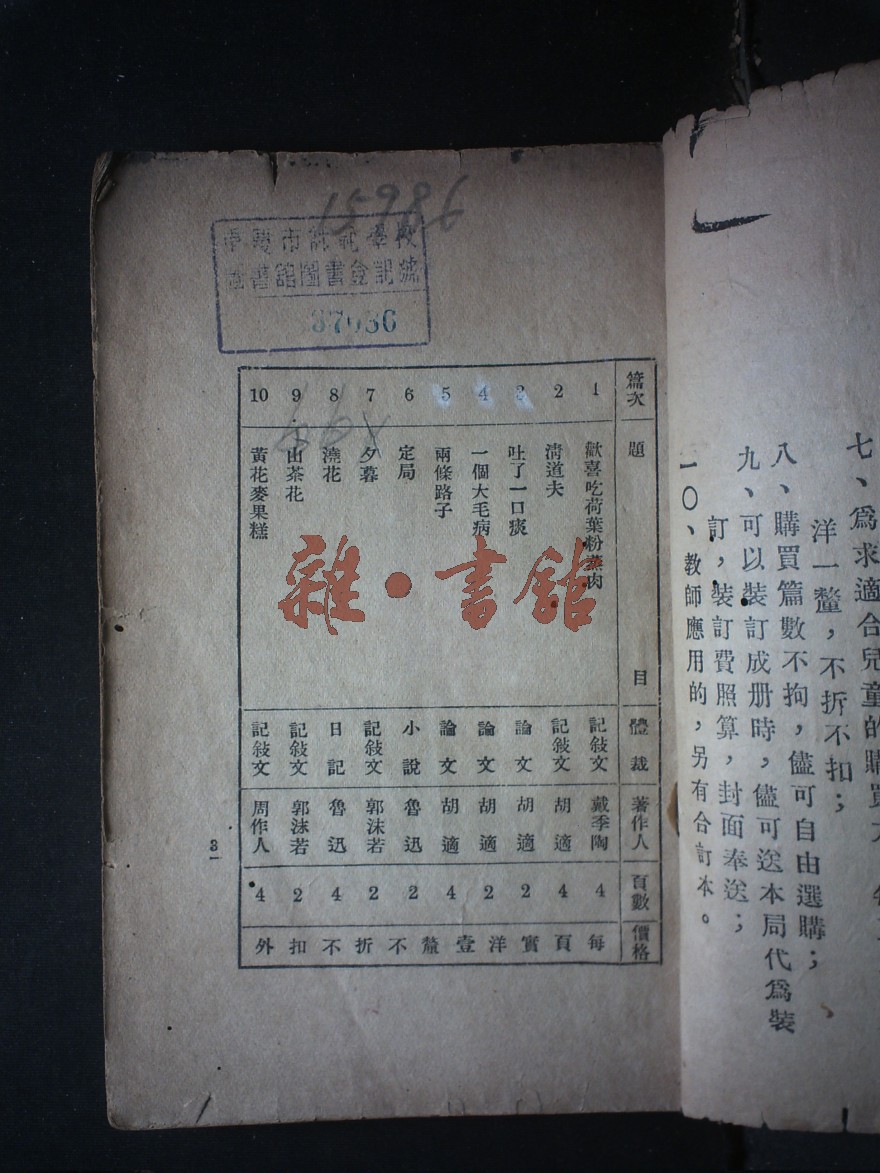 七、爲求適合兒童的購買力
洋一釐，不折不扣；
八、購買篇數不拘，儘可自由選購；
九、可以裝訂成册時，儘可送本局代爲裝
訂，裝訂費照算，封面奉送；
一〇、教師應用的，另有合訂本。
15986
圖書館圖書登記號
37036
篇次 題目 體裁 著作人 頁數 價格
1 歡喜吃荷葉粉蒸肉 記敍文 戴季陶 4
2 清道夫 記敍文 胡適 4
3 吐了一口痰 論文 胡適 2
4 一個大毛病 論文 胡適 2
5 兩條路子 論文 胡適 4
6 定局 小說 魯迅 2
7 夕暮 記敍文 郭沫若 2
8 澆花 日記 魯迅 4
9 山茶花 記敍文 郭沫若 2
10 黃花麥果糕 記敍文 周作人 4
每頁實洋壹釐不折不扣外
3
雜·書館